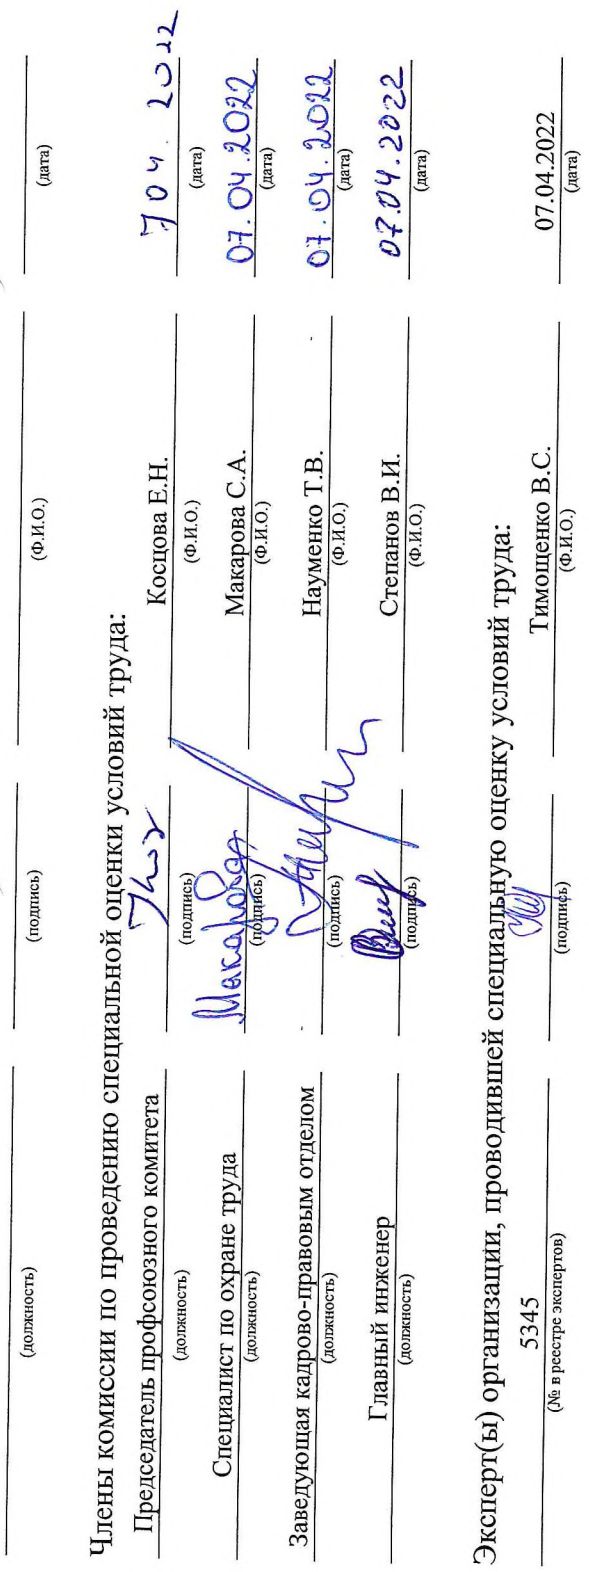 (должность) (подпись) (Ф.И.О.) (дата)
Члены комиссии по проведению специальной оценки условий труда:
Председатель профсоюзного комитета Косцова Е.Н. 7 04. 2022
(должность) (подпись) (Ф.И.О.) (дата)
Специалист по охране труда Макарова Макарова С.А. 07.04.2022
(должность) (подпись) (Ф.И.О.) (дата)
Заведующая кадрово-правовым отделом Науменко Т.В. 07.04.2022
(должность) (подпись) (Ф.И.О.) (дата)
Главный инженер Степанов В.И. 07.04.2022
(должность) (подпись) (Ф.И.О.) (дата)
Эксперт(ы) организации, проводившей специальную оценку условий труда:
5345 Тимощенко В.С. 07.04.2022
(№ в реестре экспертов) (подпись) (Ф.И.О.) (дата)